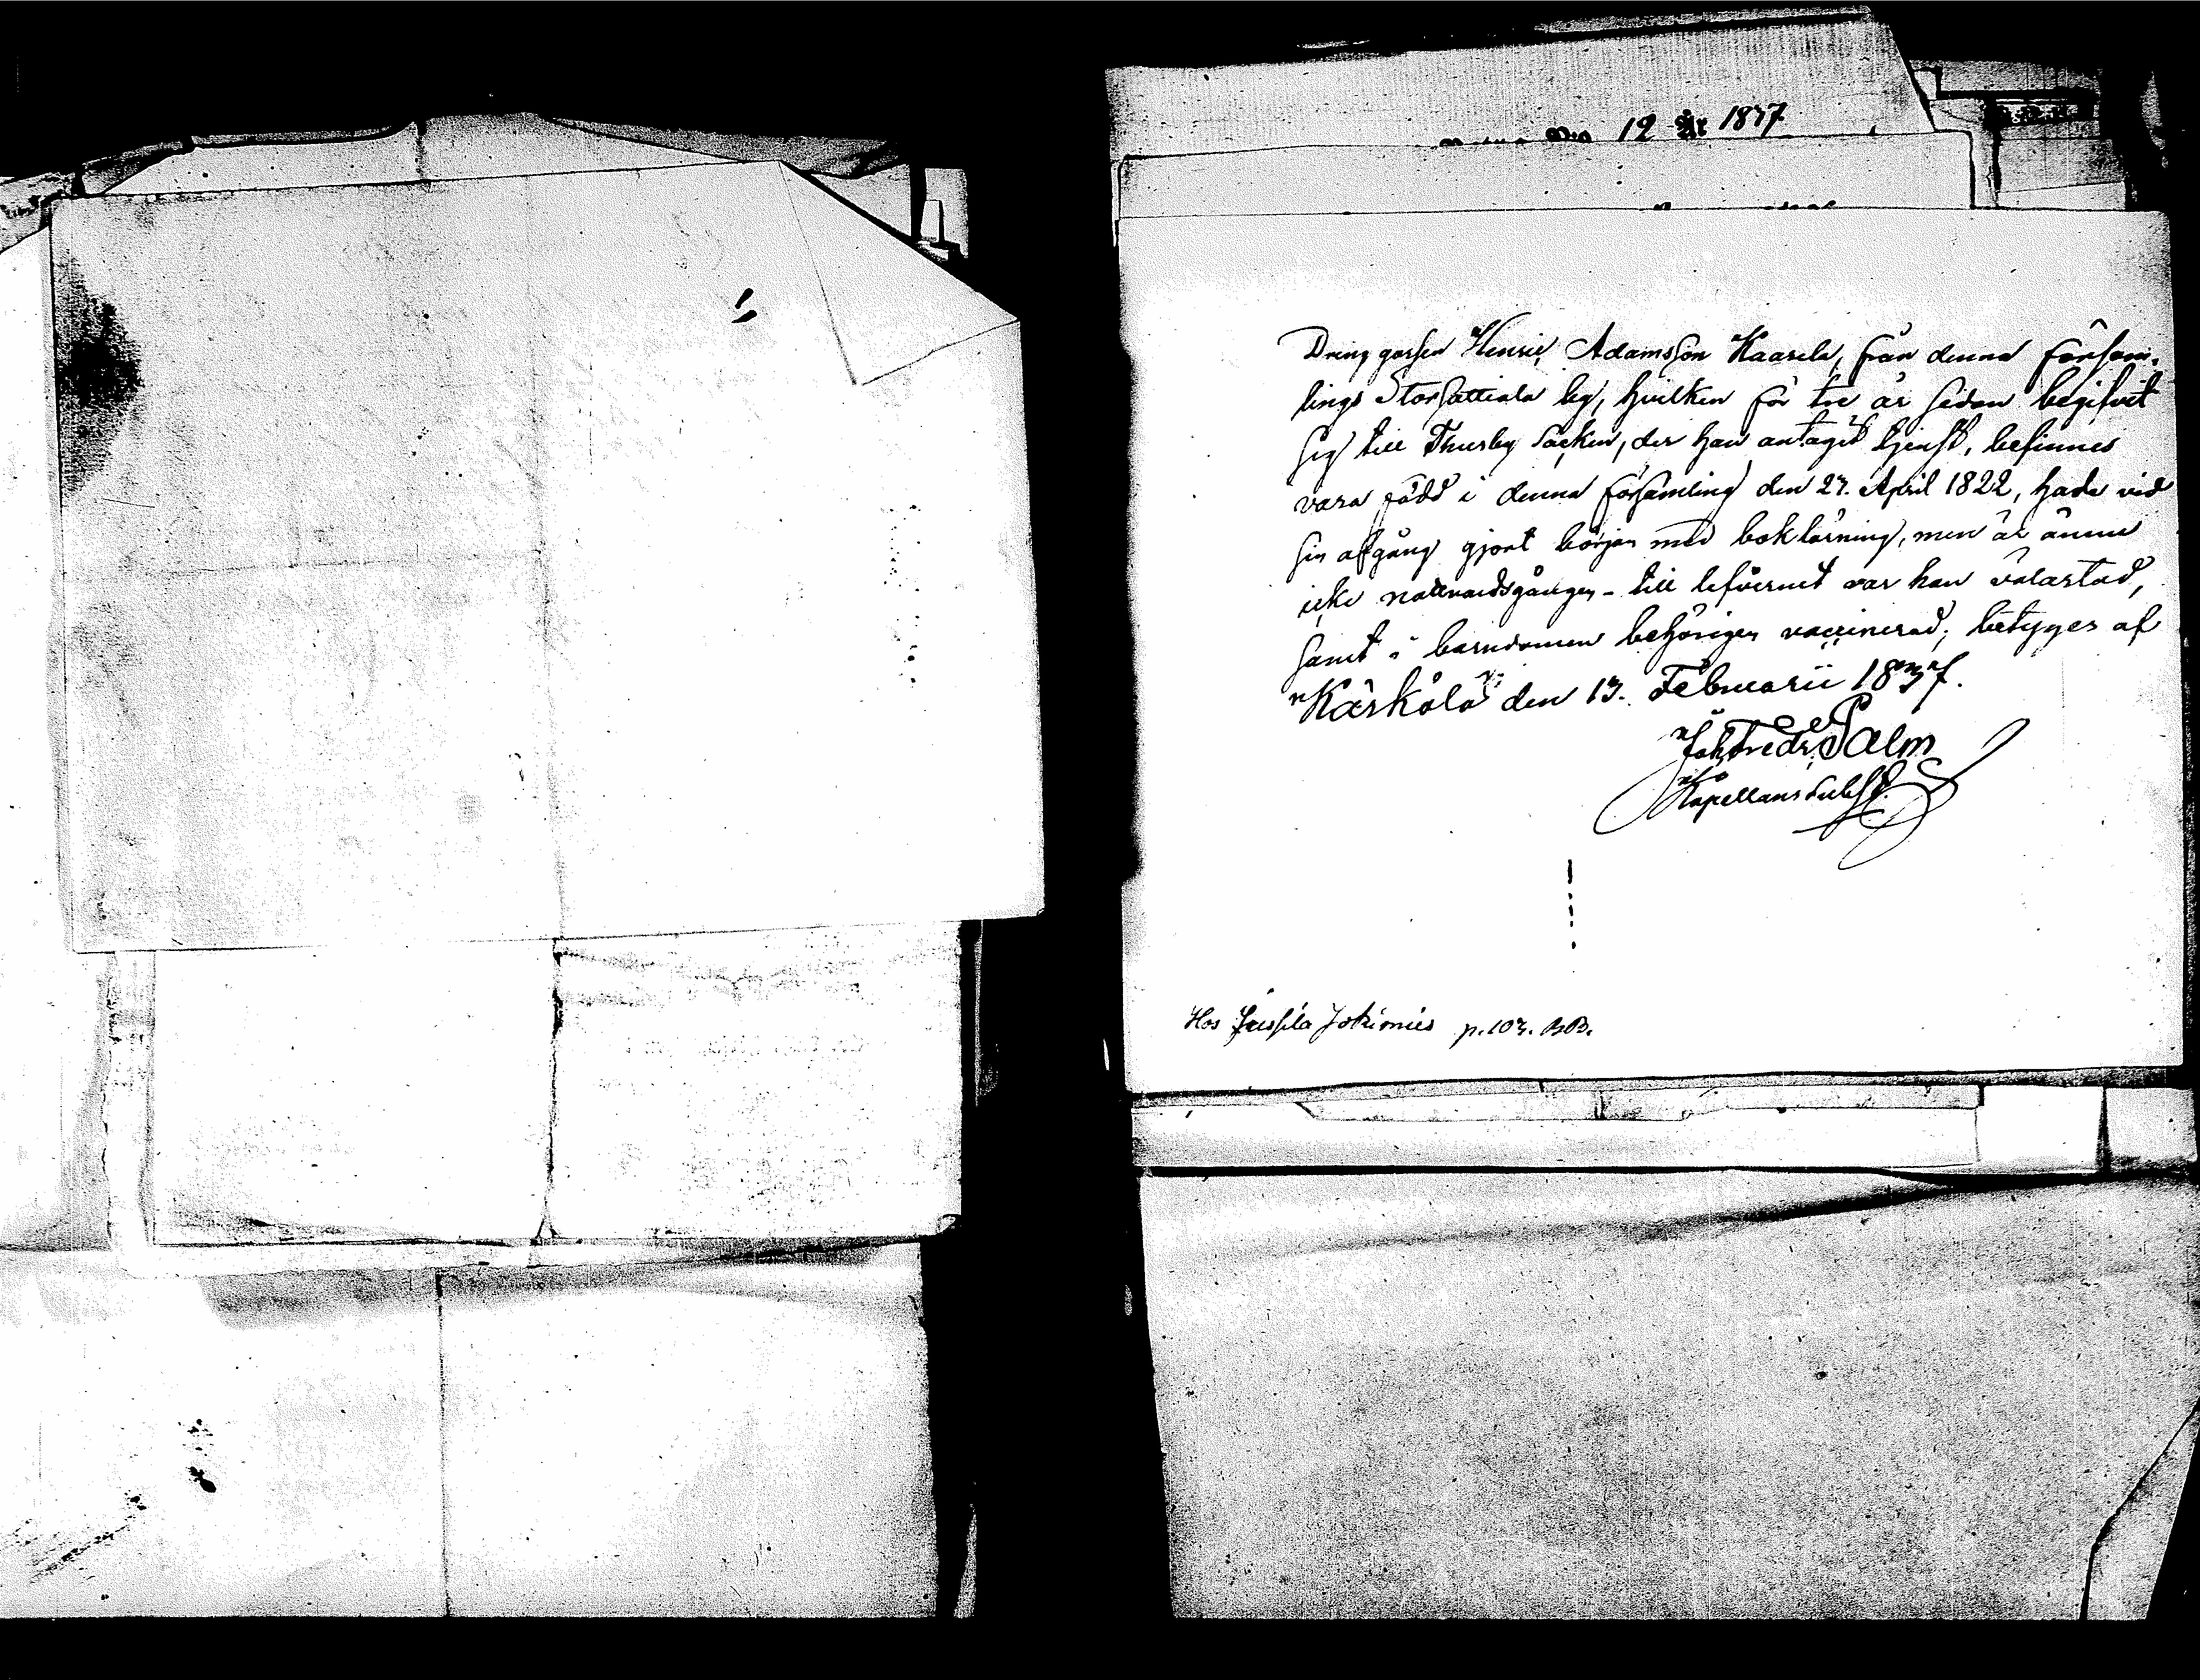 12 1837
Dreng gossen Henric Adamsson Kaarela, från denna försam-
lings Storsattiala by, hvilken för tre år sedan begifvit
sig till Thusby Socken, der han antagit tjenst, befinnes
vara född i denna församling den 27. April 1822, hade vid
sin afgång gjort början med boklärning, men är ännu
icke nattvardsgången - till lefvernet var han olastad,
samt i barndomen behörigen vaccinerad; betyges af
Kärkölä den 13. Februarii 1837.
Joh Fredr Palm
Kapellans Subst.
Hos Jussila Jokimies p. 103. BB.